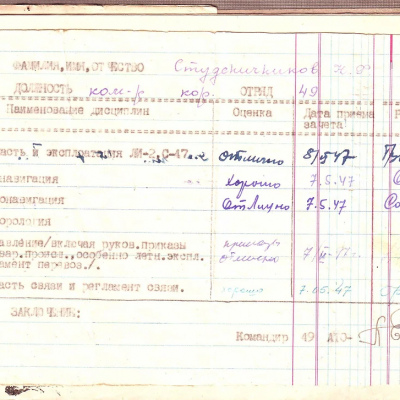 ФАМИЛИЯ, ИМЯ, ОТЧЕСТВО Студеничников К.Ф
ДОЛЖНОСТЬ ком-р кор. ОТРЯД 49
Наименование дисциплин Оценка Дата приема зачета
асть и эксплоатация ЛИ-2, С-47 отлично 8/V 47
навигация хорошо 7.5.47
онавигация Отлично 7.5.47
орология
авление/включая руков.приказы
вар.происз.,особенно летн.экспл. 7/
амент перевоз./.
асть связи и регламент связи. хорошо 7.05.47
ЗАКЛЮЧЕНИЕ:
Командир 49 АТО-